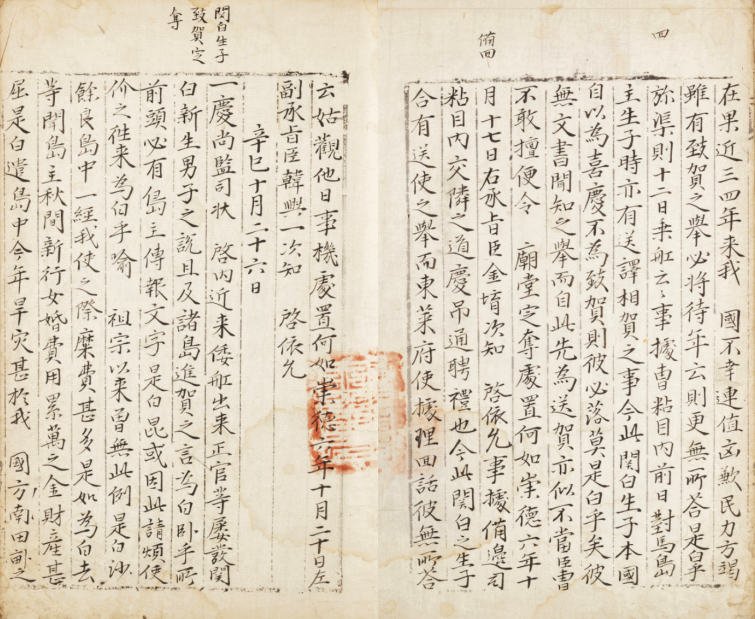 四
備四
在果近三四年來我 國不幸連値凶歉民力方竭
雖有致賀之擧必將待年云則更無所答是白乎旀
渠則十二日乘舡云云事據曹粘目內前日對馬島
主生子時亦有送譯相賀之事今此関白生子本國
自以為喜慶不為致賀則彼必落莫是白乎矣彼
無文書聞知之擧而自此先為送賀亦似不當臣曹
不敢擅便令 廟堂定奪處置何如崇德六年十
月十七日右承旨臣金堉次知 啓依允事據備邊司
粘目內交隣之道慶吊通聘禮也今此関白之生子
合有送使之擧而東萊府使據理回話彼無所答
云姑觀他日事機處置何如崇德六年十月二十日左
副承旨臣韓興一次知 啓依允
辛巳十月二十六日
関白生子
致賀定
奪
一慶尚監司狀 啓內近來倭舡出來正官等屢發関
白新生男子之說且及諸島進賀之言為白卧乎所
前頭必有島主傳報文字是白昆或因此請煩使
价之徃來為白乎喩 祖宗以來曾無此例是白沙
餘良島中一經我使之際糜費甚多是如為白去
等聞島主秋間新行女婚費用累萬之金財產甚
屈是白遣島中今年旱灾甚於我 國方南田畝之